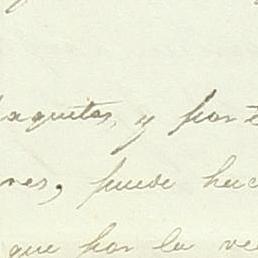 aquetas, y por
nes, puede hac
que por la ve